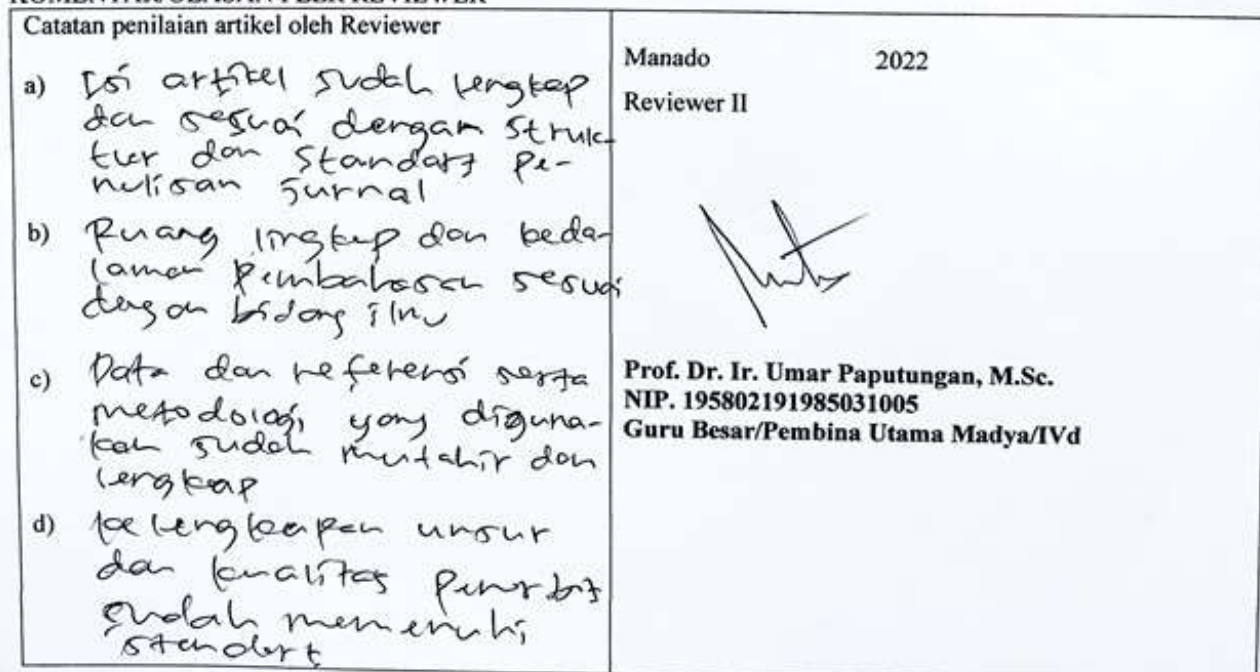 Catatan penilaian artikel oleh Reviewer
a) Isi artikel sudah lengkap
dan sesuai dengan struk-
tur dan standart pe-
nulisan jurnal
b) Ruang lingkup dan keda-
laman pembahasan sesuai
dengan bidang ilmu
c) Data dan referensi serta
metodologi yang diguna-
kan sudah mutahir dan
lengkap
d) kelengkapan unsur
dan kualitas penerbit
sudah memenuhi
standart
Manado 2022
Reviewer II
Prof. Dr. Ir. Umar Paputungan, M.Sc.
NIP. 195802191985031005
Guru Besar/Pembina Utama Madya/IVd